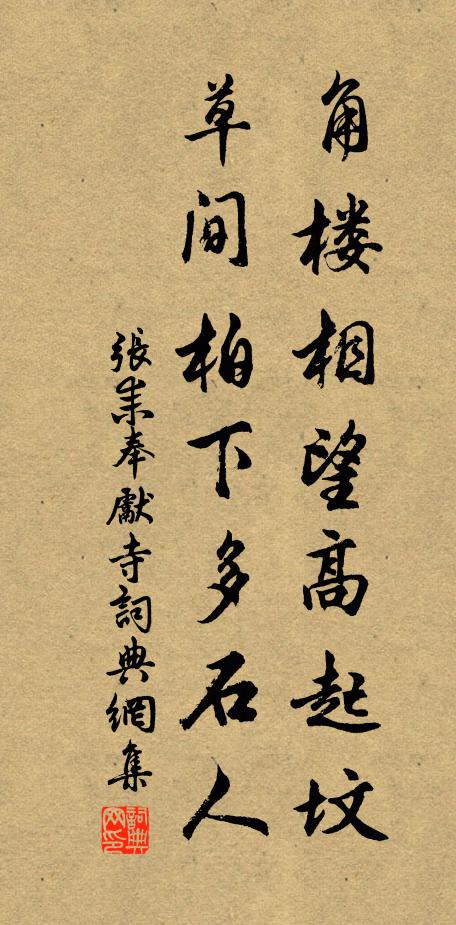 角楼相望高起坟
草间柏下多石人
張耒奉獻寺詞典網集
詞典网印